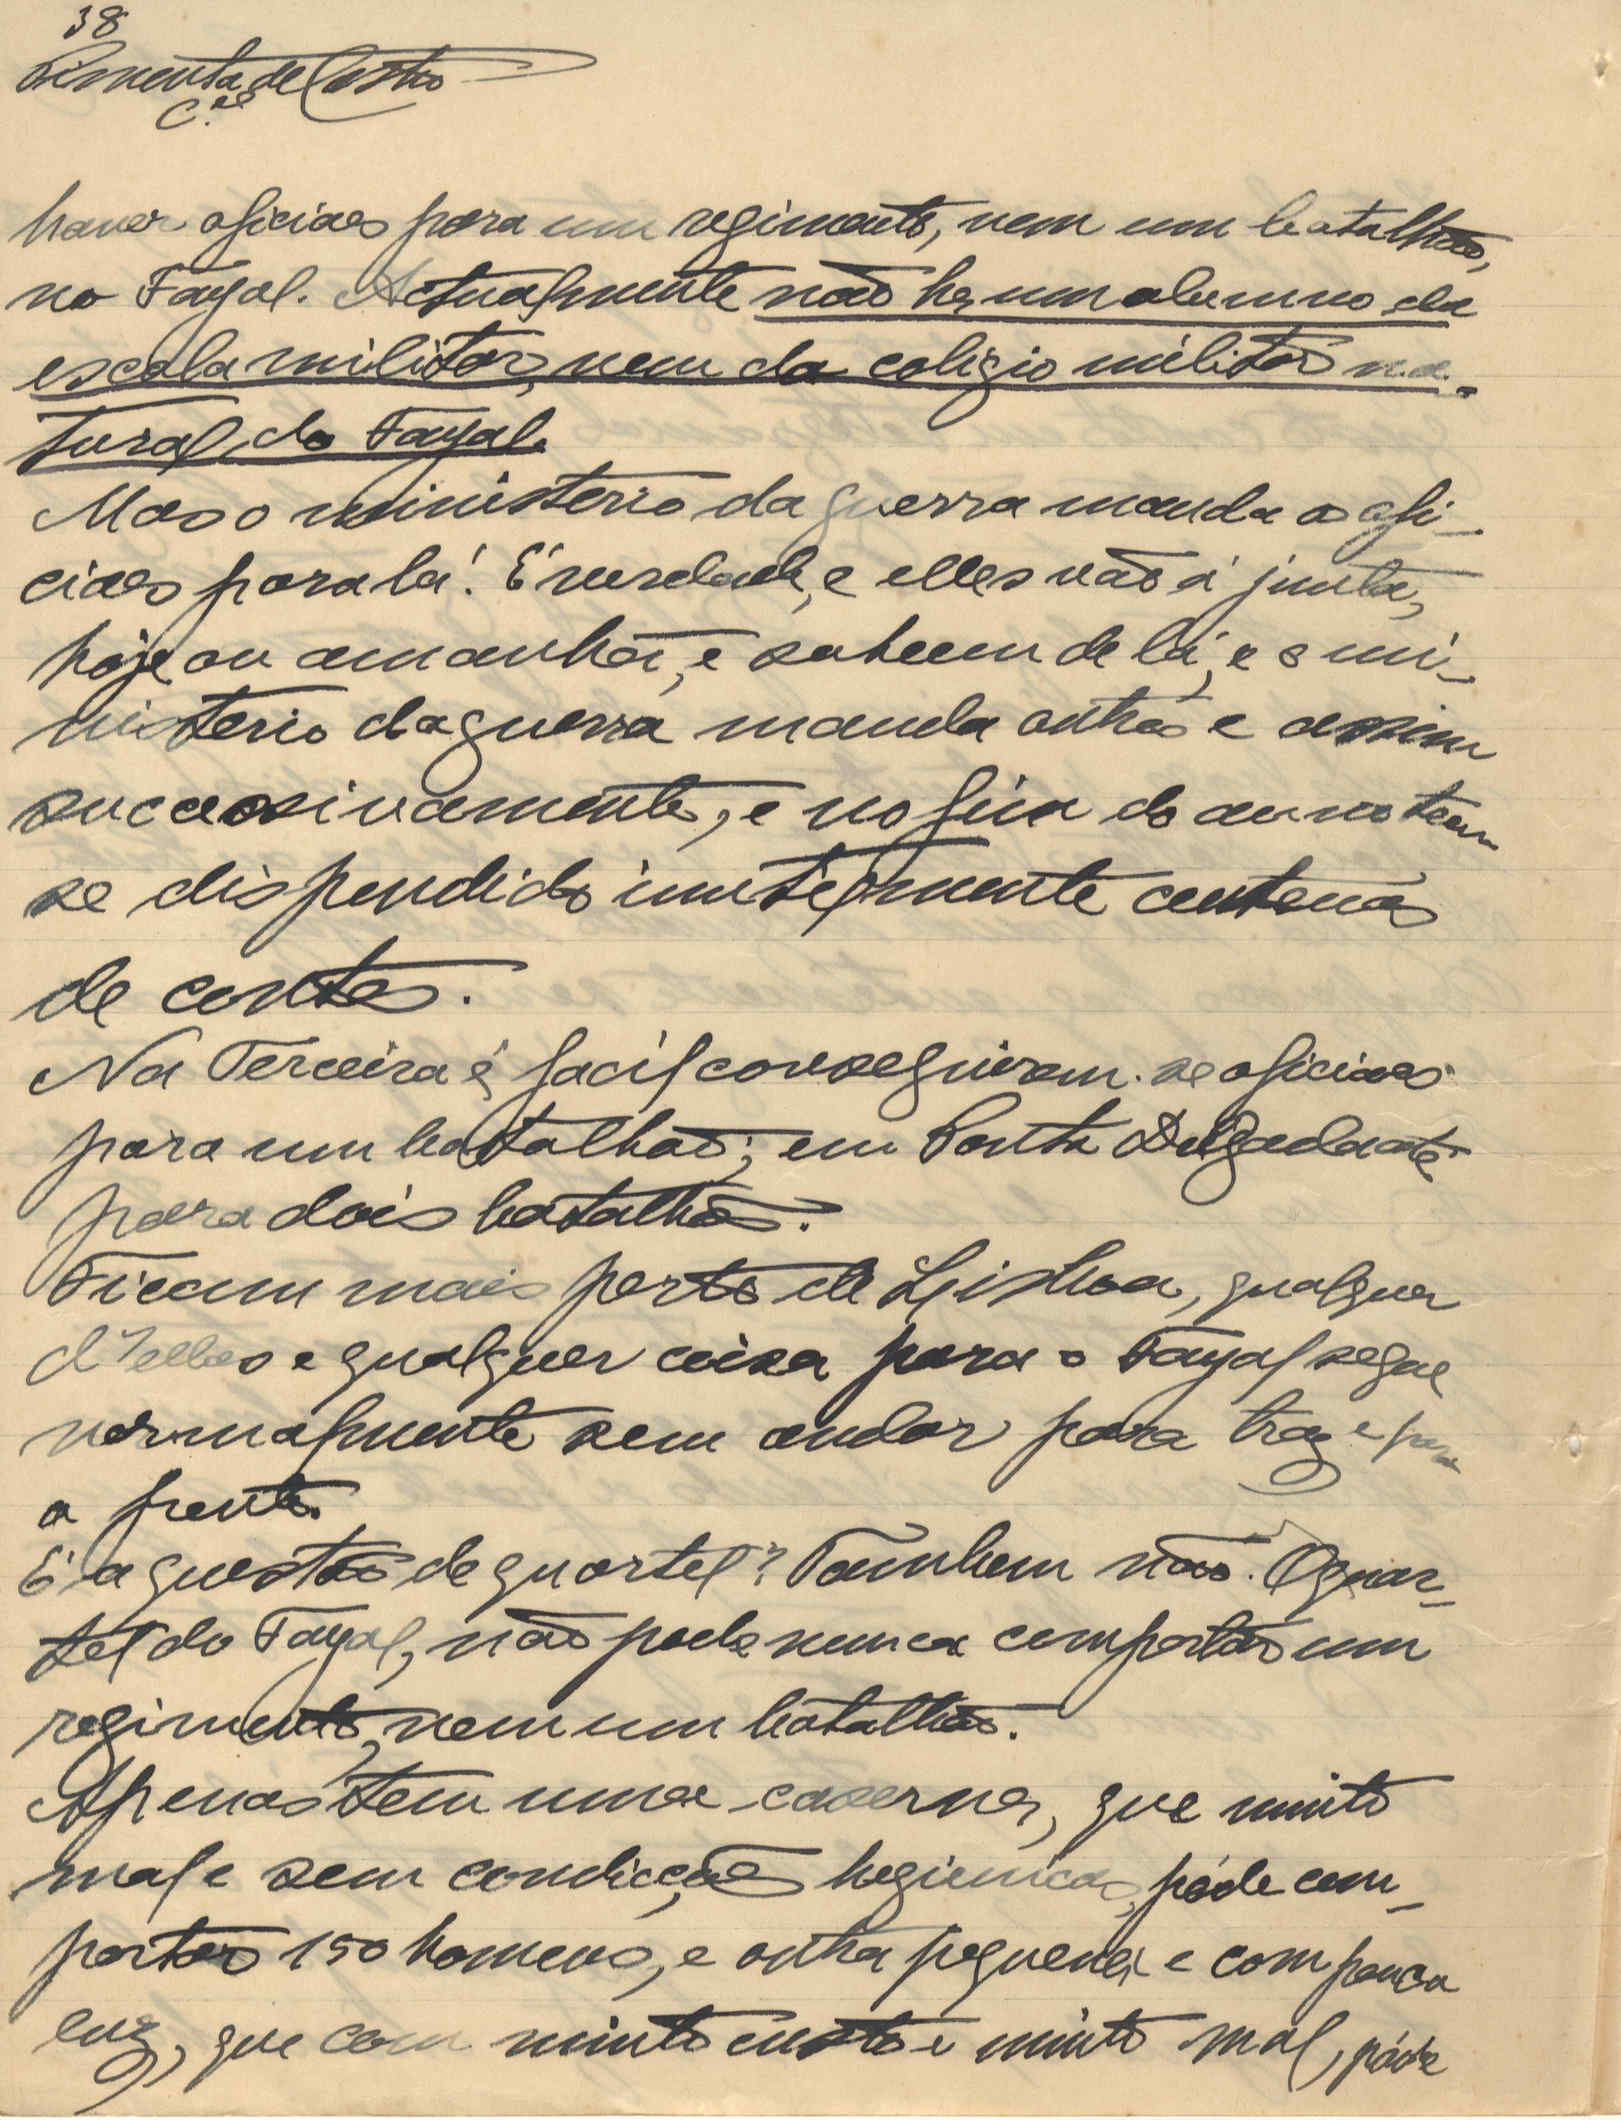 38
Pimenta de Castro
C.el
haver oficiaes para um regimento, nem um batalhão,
no Fayal. Actualmente não ha um alumno da
escola militar, nem do colegio militar na-
tural do Fayal.
Mas o ministerio da guerra manda os ofi-
ciaes para lá! É verdade, e elles vão á junta,
hoje ou amanhã, e sahem de lá, e o mi-
nisterio da guerra manda outros e assim
successivamente, e no fim do anno tem
se dispendido inutilmente centenas
de contos.
Na Terceira é facil conseguirem-se oficiaes
para um batalhão; em Ponta Delgada até
para dois batalhões.
Ficam mais perto de Lisboa, qualquer
d'ellas e qualquer coisa para o Fayal segue
normalmente sem andar para traz e para
a frente.
É a questão de quartel? Tambem não. O quar-
tel do Fayal, não pode nunca comportar um
regimento, nem um batalhão.
Apenas tem uma caserna, que muito
mal e sem condicções higienicas, póde com-
portar 150 homens, e outra pequena e com pouca
luz, que com muito custo e muito mal, póde